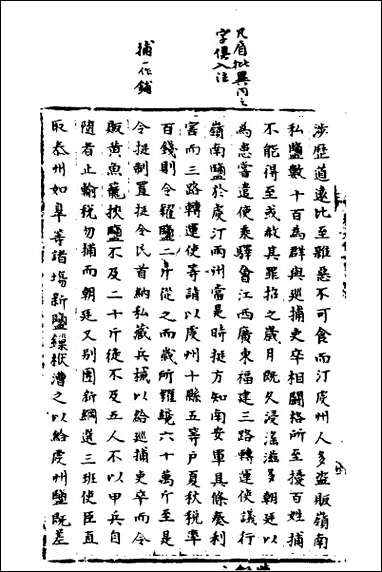 凡眉批異同之
字俱入注
捕一作鋪
涉歷道遠比至雜惡不可食而汀虔州人多盜販嶺南
私鹽數十百為群與巡捕吏卒相鬬格所至擾百姓捕
不能得至或赦其罪招之歲月既久浸淫滋多朝廷以
為患嘗遣使乘驛會江西廣東福建三路轉運使議行
嶺南鹽於虔汀兩州當是時挺方知南安軍具條奏利
害而三路轉運使等請以虔州十縣五等戶夏秋稅率
百錢則令糴鹽二斤從之而歲所糴纔六十萬斤至是
令挺制置挺令民首納私藏兵械以給巡捕吏卒而令
販黃魚籠挾鹽不及二十斤徒不及五人不以甲兵自
隨者止輸稅勿捕而朝廷又別團新綱選三班使臣直
取泰州如皋等諸場新鹽鏁栿漕之以給虔州鹽既差